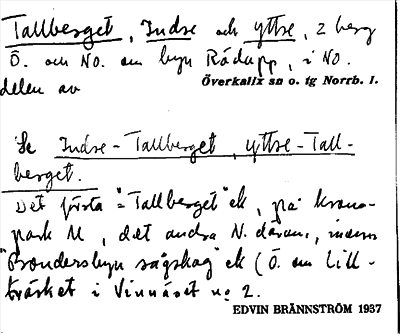 Tallberget, Indre och yttre, 2 berg
Ö. om NO. om byn Rödupp, i NO.
delen av
Överkalix sn o. tg Norrb. l.
Se Indre-Tallberget, yttre-Tall-
berget.
Det första = "Tallberget" ek, på krono-
park M, det andra N. därom, inom
"Brändersbyn sågskog" ek (Ö. om Lill-
träsket i Vinnäset no 2.
EDVIN BRÄNNSTRÖM 1937